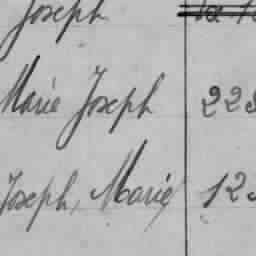 Joseph
Marie Joseph 22
Joseph, Marie 12